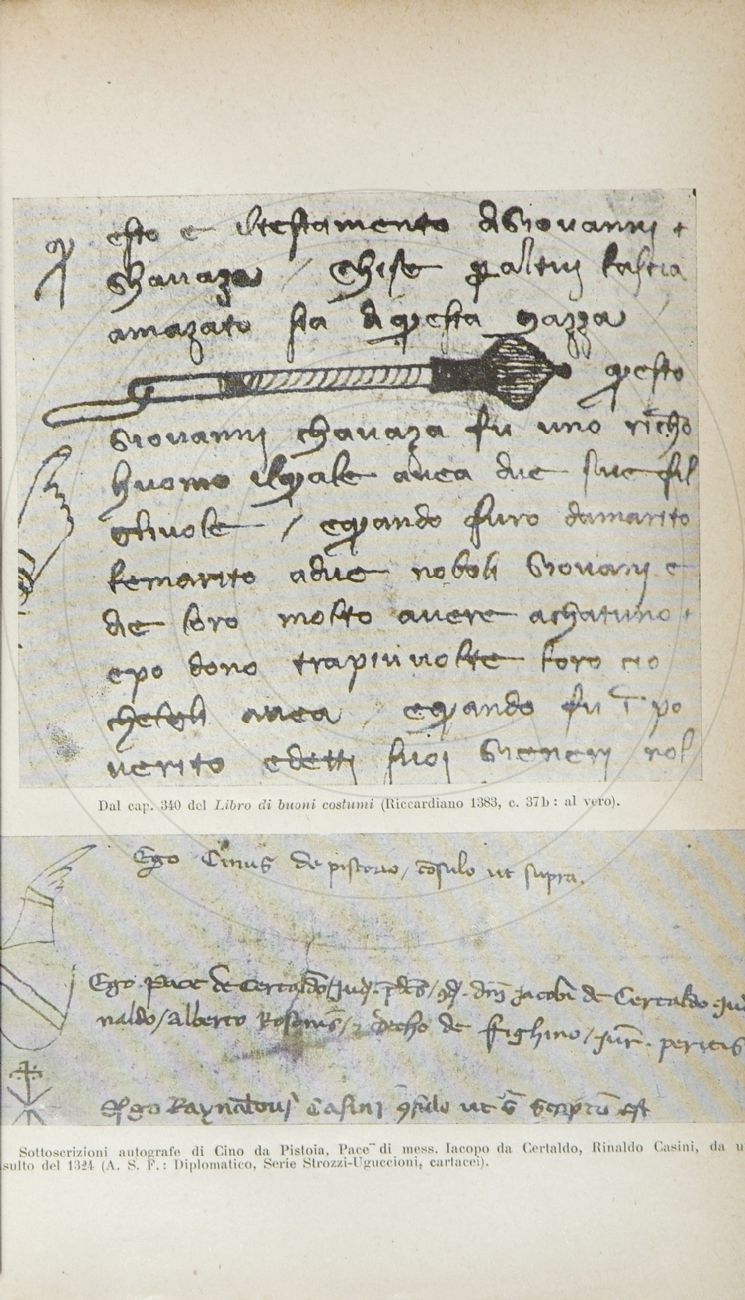 esto e iltestamento digiovannj
chavaza / Chise paltrij lascia
amazato sia diquesta mazza
questo
giovannj chavaza fu uno richo
huomo ilquale avea due sue fil
gliuole / equando furo damarito
lemarito adue nobolj giovanj e
die loro molto avere achatuno
epo dono trapiuvolte loro cio
chelglj avea / equando fu īpo
verito edettj suoj gienerj nol
Dal cap. 340 del Libro di buoni costumi (Riccardiano 1383, c. 37b : al vero).
Ego Cinus de pistorio / cōsulo ut supra.
Ego Pace de Certaldo / Jud. dnj Jacobi de Certaldo
naldo / Alberto de fighino / peritis
Ego Raynaldus Casini 9sulo ut s̄ scriptū est
Sottoscrizioni autografe di Cino da Pistoia, Pace di mess. Iacopo da Certaldo, Rinaldo Casini, da u
sulto del 1324 (A. S. F.: Diplomatico, Serie Strozzi-Uguccioni, cartacei).